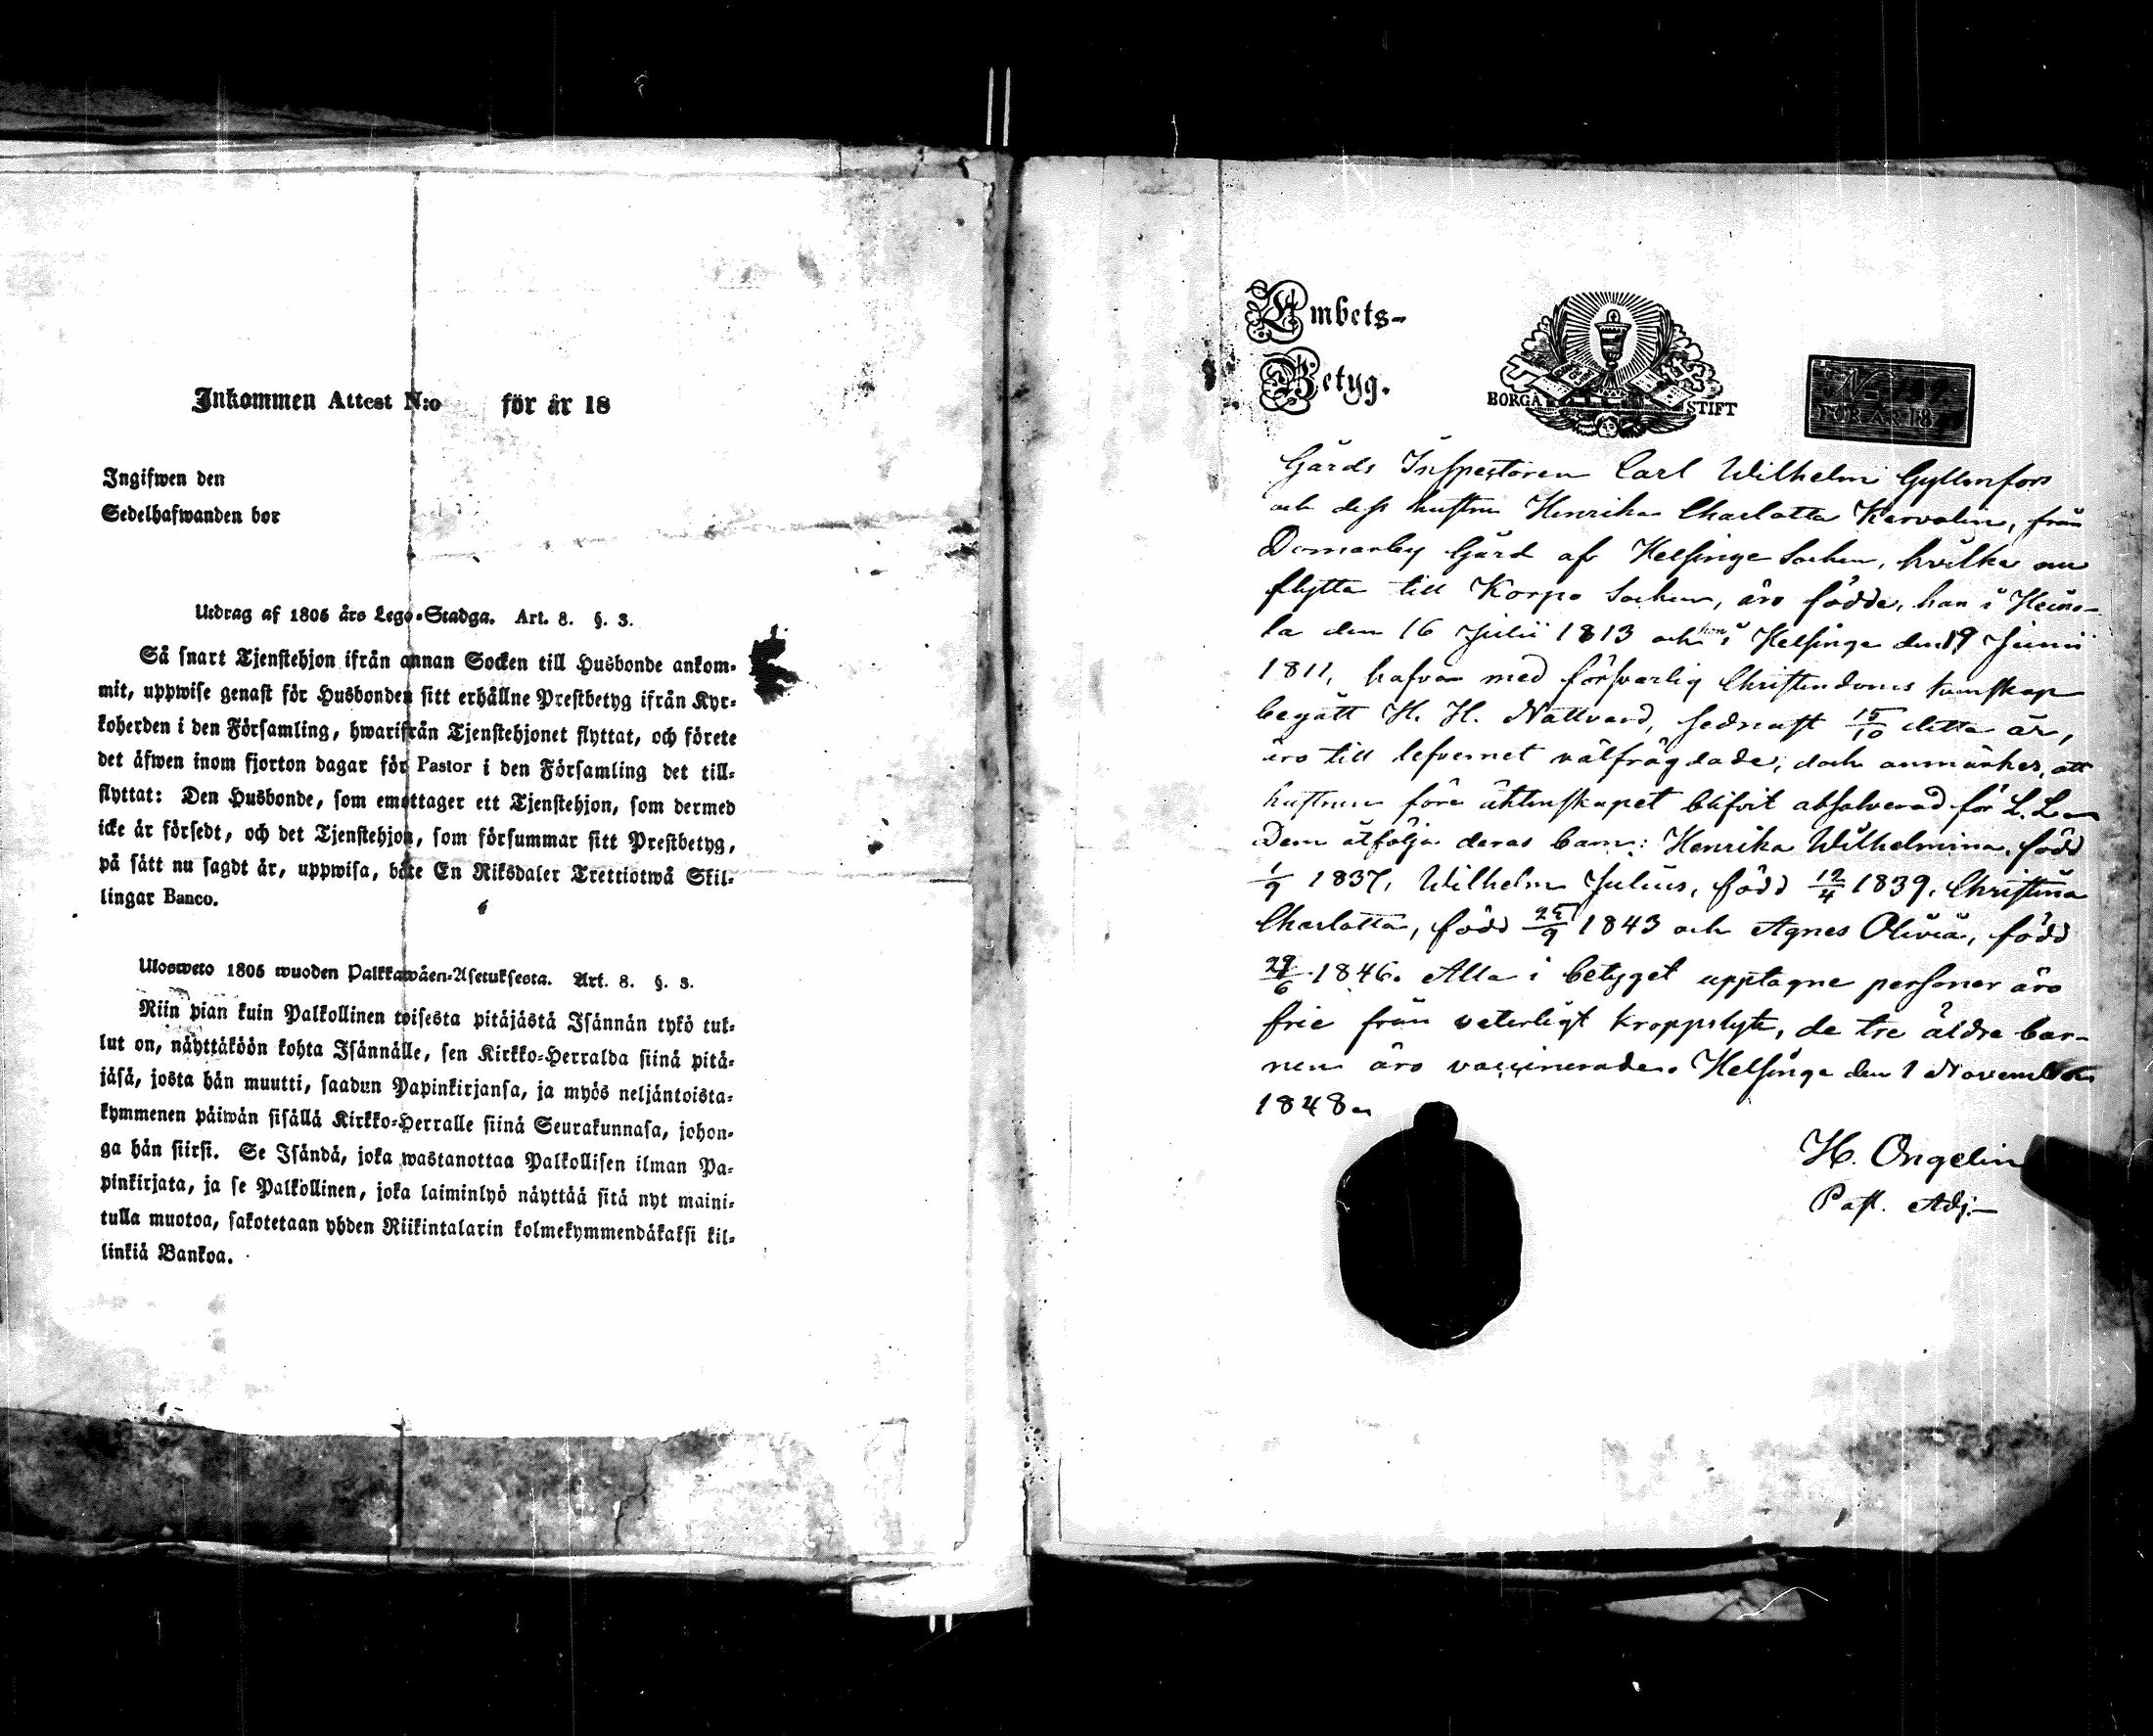 Inkommen Attest N:o för år 18
Ingifwen den
Sedelhafwanden bor
Utdrag af 1805 års Lego-Stadga. Art. 8. §. 3.
Så snart Tjenstehjon ifrån annan Socken till Husbonde ankom-
mit, uppwise genast för Husbonden sitt erhållne Prestbetyg ifrån Kyr-
koherden i den Församling, hwarifrån Tjenstehjonet flyttat, och förete
det äfwen inom fjorton dagar för Pastor i den Församling det till-
flyttat: Den Husbonde, som emottager ett Tjenstehjon, som dermed
icke är försedt, och det Tjenstehjon, som försummar sitt Prestbetyg,
på sätt nu sagdt är, uppwisa, böte En Riksdaler Trettiotwå Skil-
lingar Banco.
Ulosweto 1805 wuoden Palkkawäen-Asetuksesta. Art. 8. §. 3.
Niin pian kuin Palkollinen toisesta pitäjästä Isännän tykö tul-
lut on, näyttäköön kohta Isännälle, sen Kirkko-Herralda siinä pitä-
jäsä, josta hän muutti, saadun Papinkirjansa, ja myös neljäntoista-
kymmenen päiwän sisällä Kirkko-Herralle siinä Seurakunnasa, johon-
ga hän siirsi. Se Isändä, joka wastanottaa Palkollisen ilman Pa-
pinkirjata, ja se Palkollinen, joka laiminlyö näyttää sitä nyt maini-
tulla muotoa, sakotetaan yhden Riikintalarin kolmekymmendäkaksi kil-
linkiä Bankoa.
Embets-
Betyg.
BORGÅ STIFT
N
FÖR ÅR 18
Gårds Inspectoren Carl Wilhelm Gyllenfors
och dess hustru Henrika Charlotta Kervolin, från
Domarby Gård af Helsinge Socken, hvilka nu
flytta till Korpo Socken, äro födde, han i Heino-
la den 16 Julii 1813 och hon i Helsinge den 19 Junii
1811, hafva med försvarlig Christendoms kunskap
begått H. H. Nattvard, sednast 15/10 detta år,
äro till lefvernet välfrägdade, dock anmärkes, att
hustrun före äktenskapet blifvit absolverad för L. L.
Dem åtfölja deras barn: Henrika Wilhelmina, född
1/9 1837, Wilhelm Julius, född 12/4 1839, Christina
Charlotta, född 25/9 1843 och Agnes Olivia, född
29/6 1846. Alla i betyget upptagne personer äro
frie från veterligt kroppslyte, de tre äldre bar-
nen äro vaccinerade. Helsinge den 1 November
1848.
H. Ongelin
Past. Adj.